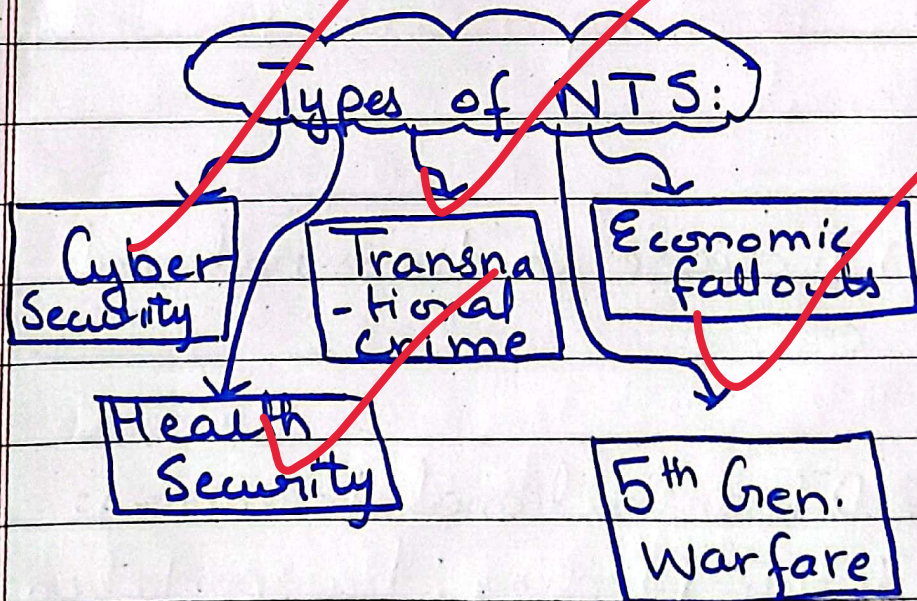 Types of NTS:
Cyber
Security
Transna
-tional
crime
Economic
fallouts
Health
Security
5th Gen.
Warfare